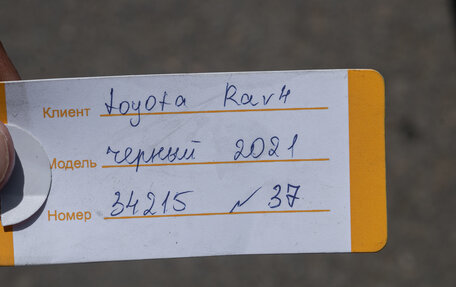 Клиент toyota Rav4
Модель черный 2021
Номер 34215 ✓ 37